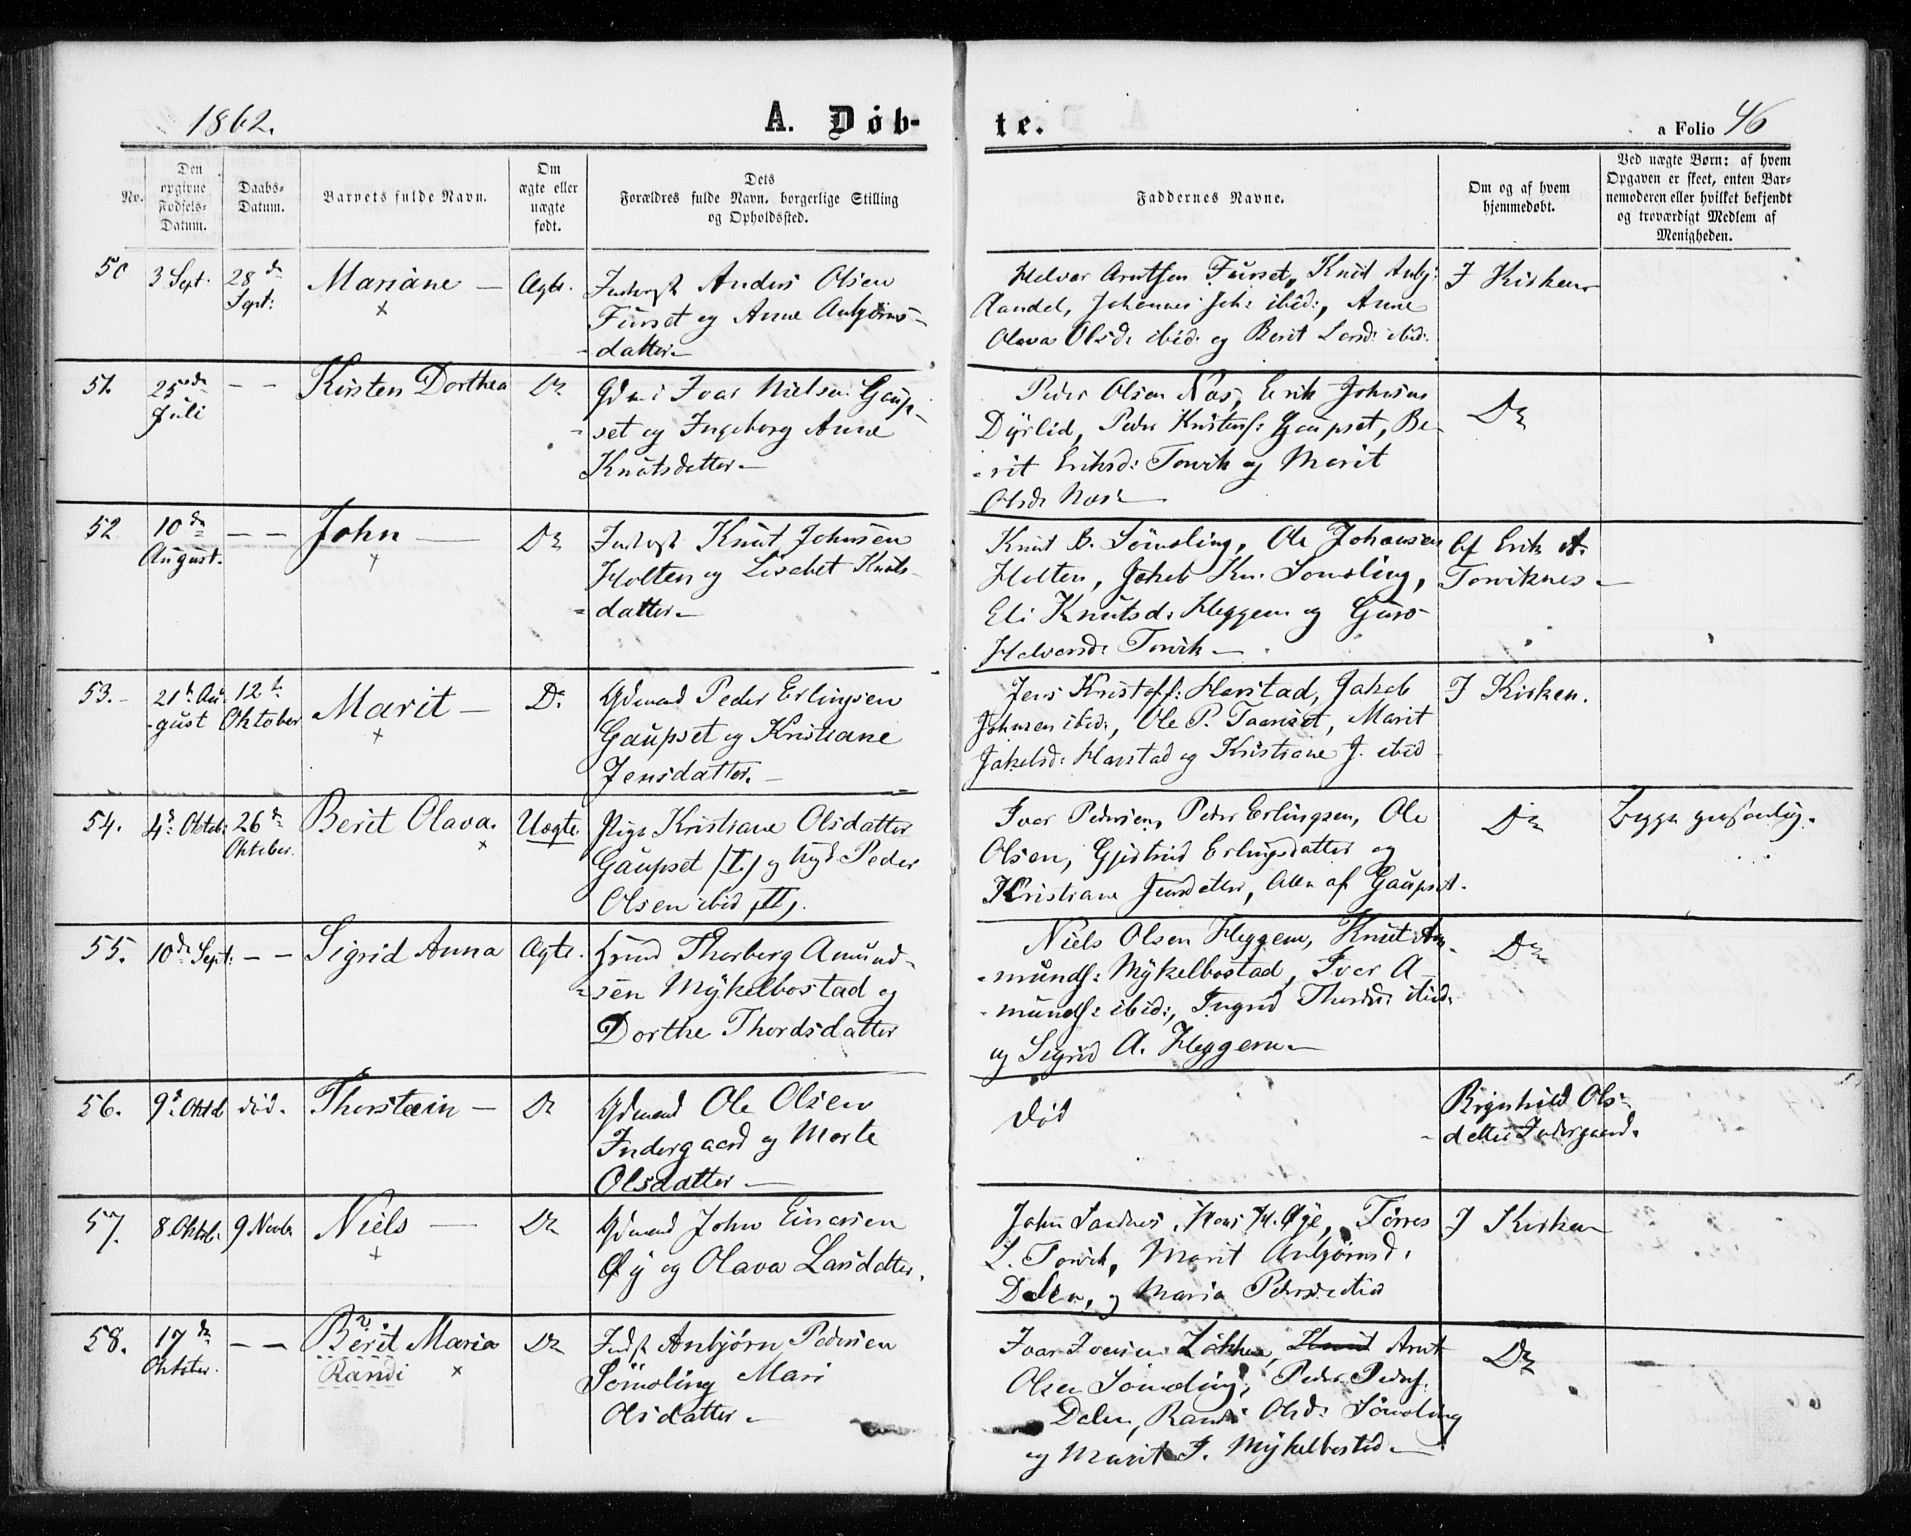 1862.
A. Døb-
te.
a Folio 46
No.
Den opgivne Fødsels-Datum.
Daabs-Datum.
Barnets fulde Navn.
Om ægte eller uægte født.
Dets Forældres fulde Navn, borgerlige Stilling og Opholdssted.
Faddernes Navne.
Om og af hvem hjemmedøbt.
Ved uægte Børn: af hvem Opgaven er skeet, enten Barnemoderen eller hvilket bekjendt og troværdigt Medlem af Menigheden.
50 3 Sept. 28de Sept: Mariane — Ægte.
Anders Olsen
Furset og Anne Anbjørns-
datter.—
Helvar Arntsen Furset, Knut Anbj:
Aandal, Johannes Joh: ibid:, Anne
Olava Olsd: ibid: og Berit Larsd: ibid:
I Kirken
51. 25de Juli — — Kirsten Dorthea Do
Gdm: Ivar Nielsen Gaup-
set og Ingeborg Anne
Knutsdatter—
Peder Olsen Næs, Erik Johnsen
Dyrlid, Peder Kristens: Gaupset, Be-
rit Eriksd: Torvik og Marit
Olsd: Næs —
Do
52 10de August. — — John — Do
Knut Johnsen
Holten og Lisebet Knuts-
datter—
Knut B. Sømoling, Ole Johansen
Holten, Jakob Kn. Sømoling,
Eli Knutsd: Heggem og Guro
Helversd: Torvik —
Af Erik A.
Torviknes—
53.- 21de August 12te Oktober Marit — Do
Gdmand Peder Erlingsen
Gaupset og Kristiane
Jensdatter.—
Jens Kristoff: Harstad, Jakob
Johnsen ibid:, Ole P. Taarset, Marit
Jakobsd: Harstad og Kristiane J. ibid
I Kirken.
54. 4de Oktob: 26de Oktober. Berit Olava. Uægte
Pige Kristiane Olsdatter
Gaupset (I.) og Ungk. Peder
Olsen ibid (II).
Iver Pedersen, Peder Erlingsen, Ole
Olsen, Gjertrud Erlingsdatter og
Kristiane Jensdatter, Alle af Gaupset.
Do
55. 10de Sept: — — Sigrid Anna Ægte.
Thorberg Amund-
sen Mykelbostad og
Dorthe Thordsdatter
Niels Olsen Heggem, Knut Am-
munds: Mykelbostad, Iver A-
munds: ibid:, Ingrid Thordsd: ibid:
og Sigrid A. Heggem—
Do
56. 9de Oktob død. Thorstein — Do
Gdmand Ole Olsen
Indergaard og Marte
Olsdatter —
Død
Olsdatter Indergaard.
57. 8 Oktb. 9 Novb. Niels — Do
Gdmand John Einersen
Øy og Olava Larsdatter.
John Sandnes, Hans H. Øye, Torres
L. Torvik, Marit Anbjørnsd:
Dalen, og Maria Pedersd ibid
I Kirken
58. 17de Oktober. — — Berit Maria
Randi
Do
Anbjørn Pedersen
Sømoling Mari
Olsdatter.—
Ivar Iversen Løkken, Knut Arnt
Olsen Sømoling, Peder Peders:
Dalen, Randi Olsd: Sømoling
og Marit I. Mykelbostad—
Do